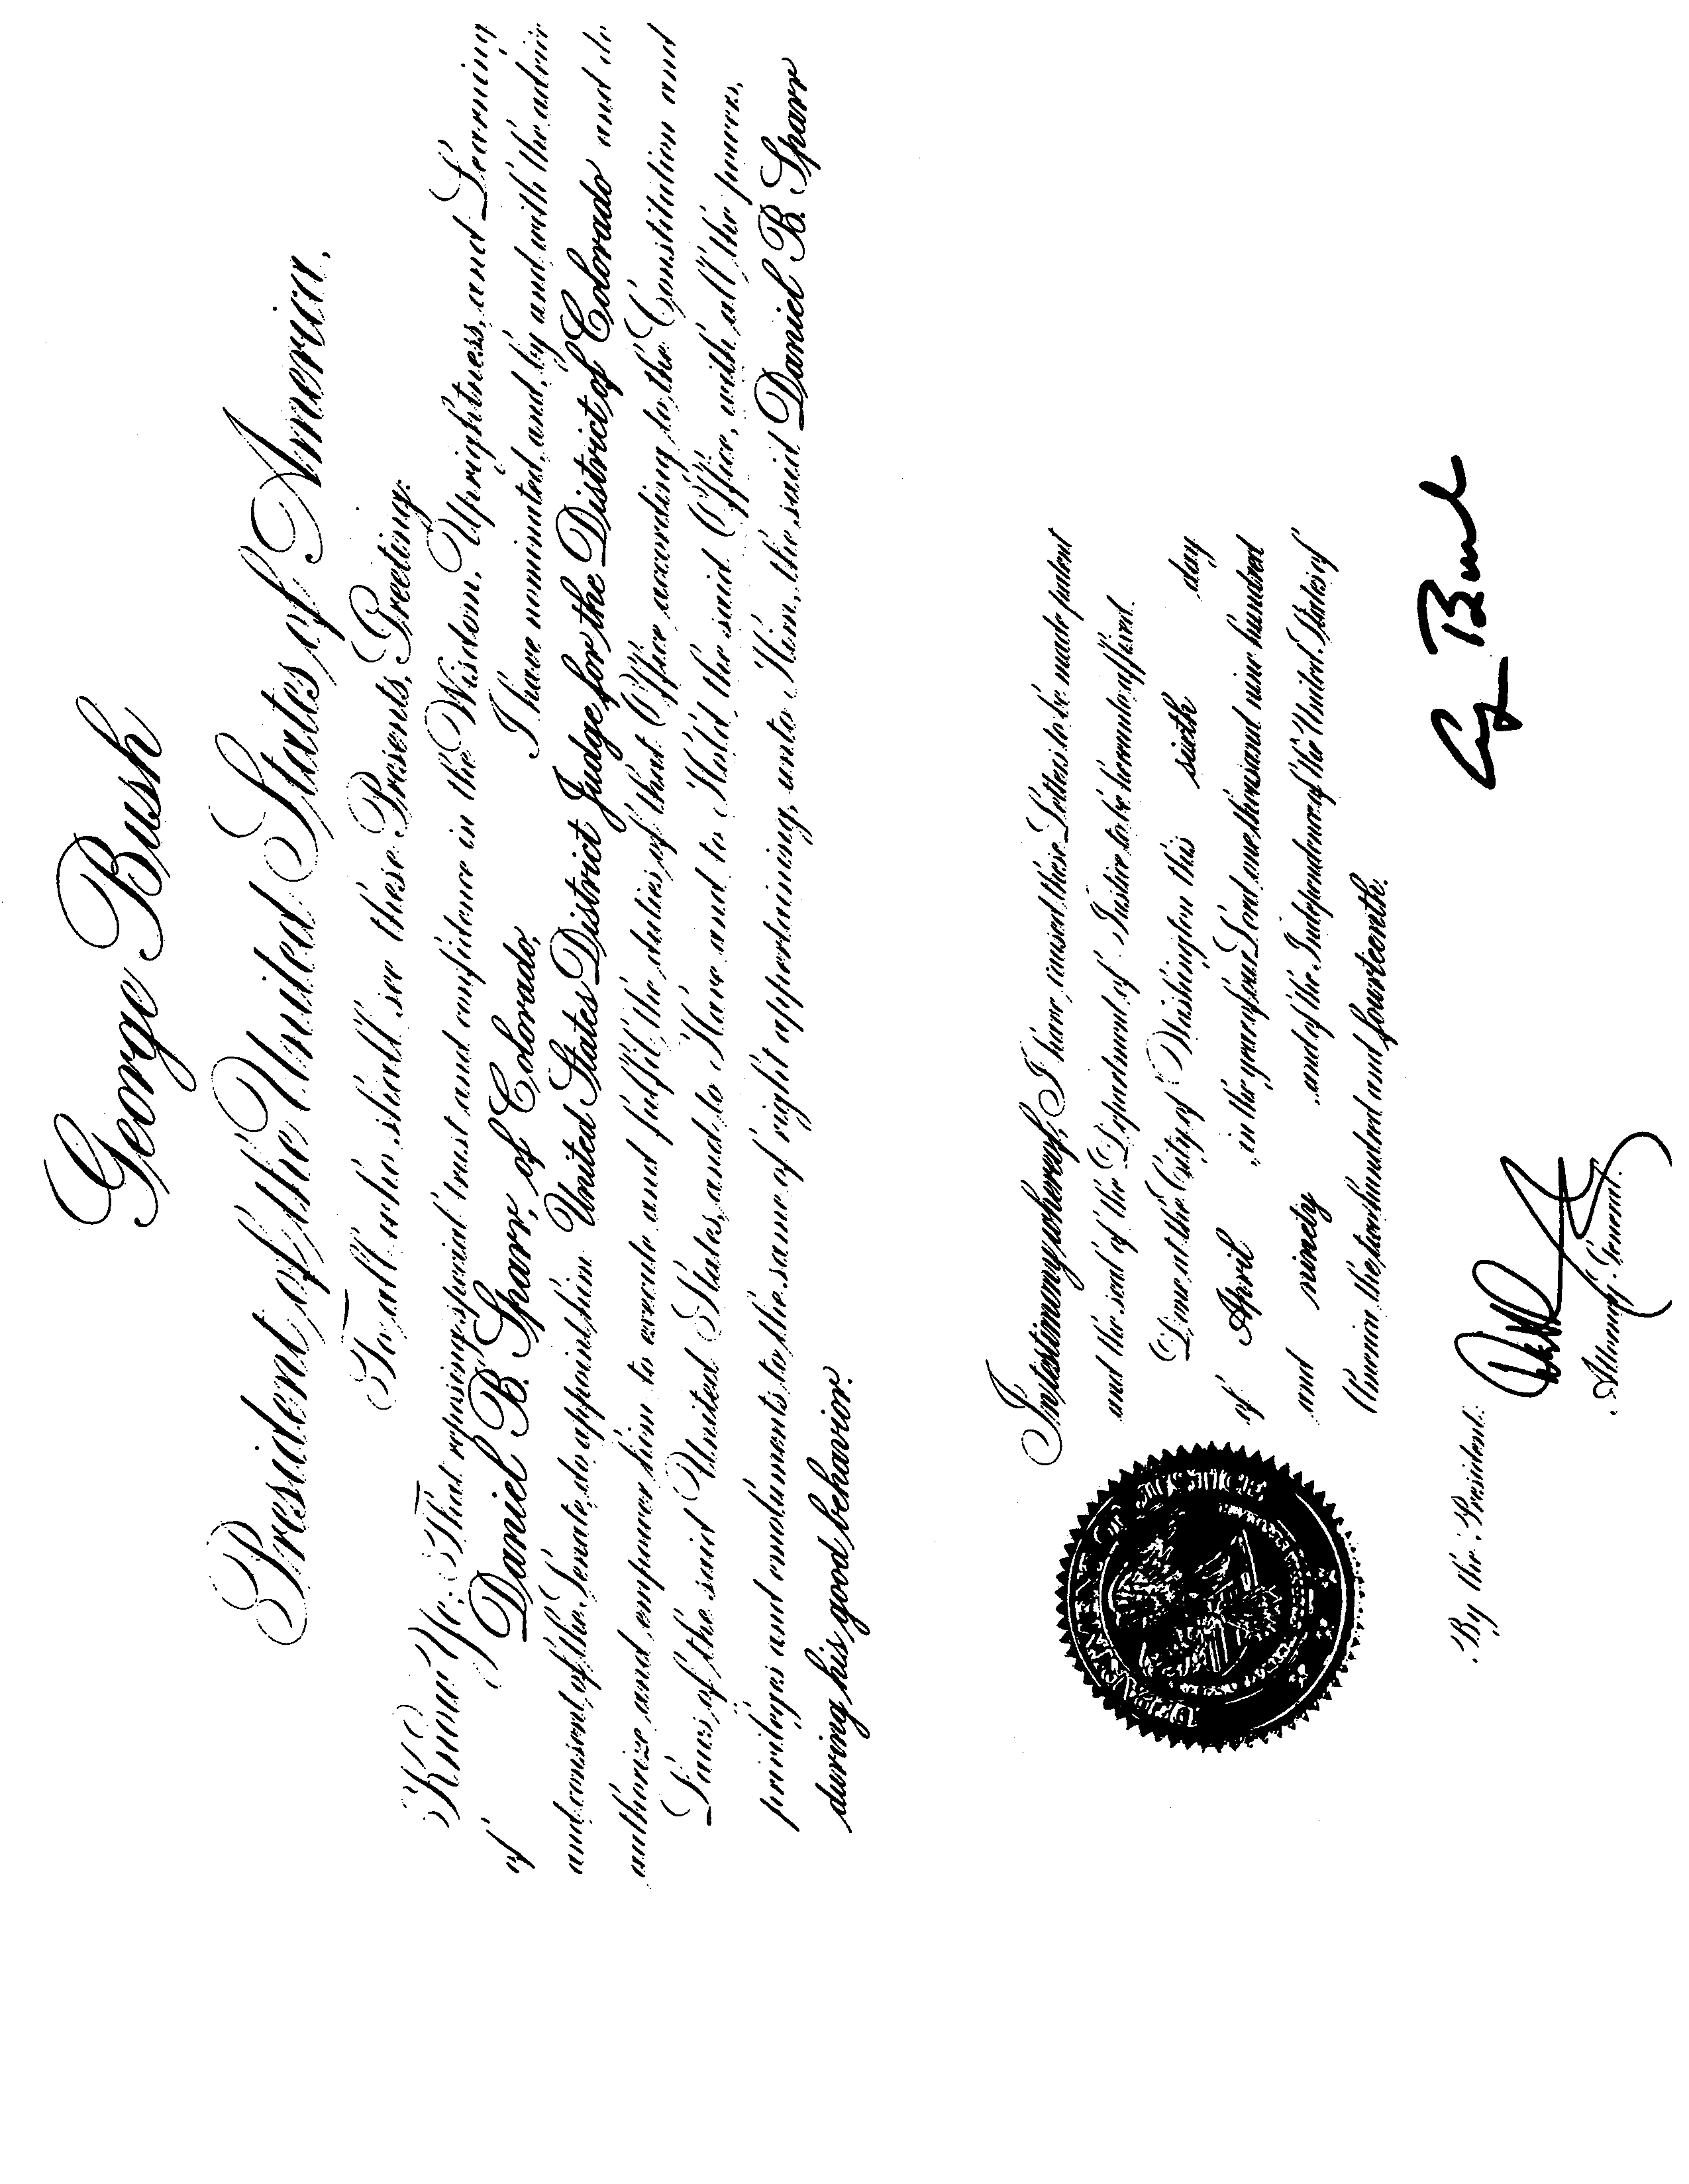 George Bush
President of the United States of America.
To all who shall see these Presents, Greeting:
Know Ye; That reposing special trust and confidence in the Wisdom, Uprightness, and Learning
of Daniel B. Sparr, of Colorado, I have nominated, and, by and with the advice
and consent of the Senate, do appoint him United States District Judge for the District of Colorado and do
authorize and empower him to execute and fulfil the duties of that Office according to the Constitution and
Laws of the said United States, and to Have and to Hold the said Office, with all the powers,
privileges and emoluments to the same of right appertaining, unto Him, the said Daniel B. Sparr
during his good behavior.
In testimony whereof, I have caused these Letters to be made patent
and the seal of the Department of Justice to be hereunto affixed.
Done at the City of Washington this sixth day
of April, in the year of our Lord one thousand nine hundred
and ninety and of the Independence of the United States of
America the two hundred and fourteenth.
George Bush
By the President:
Attorney General.